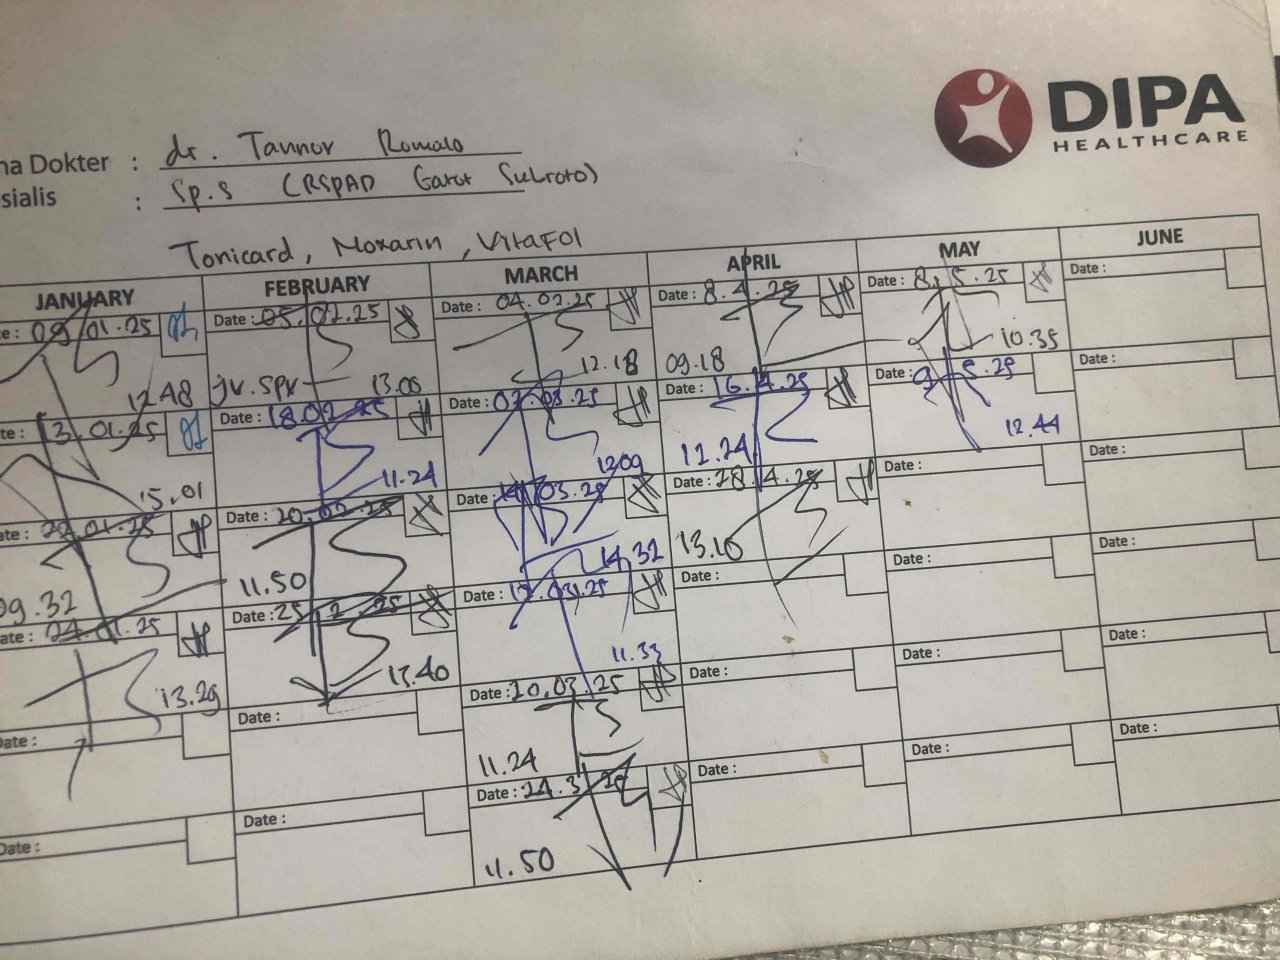 DIPA
HEALTHCARE
na Dokter : dr. Tannov Romalo
sialis : Sp.S (RSPAD Gatot Subroto)
Tonicard, Moxarin, Vitafol
JANUARY FEBRUARY MARCH APRIL MAY JUNE
te: 09.01.25 Date: 05.02.25 Date: 04.03.25 Date: 8.4.25 Date: 8.5.25 Date:
12.48 jv. spv 13.00 12.18 09.18 10.35
te: 13.01.25 Date: 18.02.25 Date: 07.03.25 Date: 16.4.25 Date: 9.5.25 Date:
15.01 11.24 12.09 12.24 12.44
ate: 22.01.25 Date: 20.02.25 Date: 14.03.25 Date: 28.4.25 Date: Date:
09.32 11.50 14.32 13.10
ate: 24.01.25 Date: 25.2.25 Date: 17.03.25 Date: Date: Date:
13.29 13.40 11.33
Date: Date: Date: 20.03.25 Date: Date: Date:
11.24
Date: Date: Date: 24.3.25 Date: Date: Date:
11.50